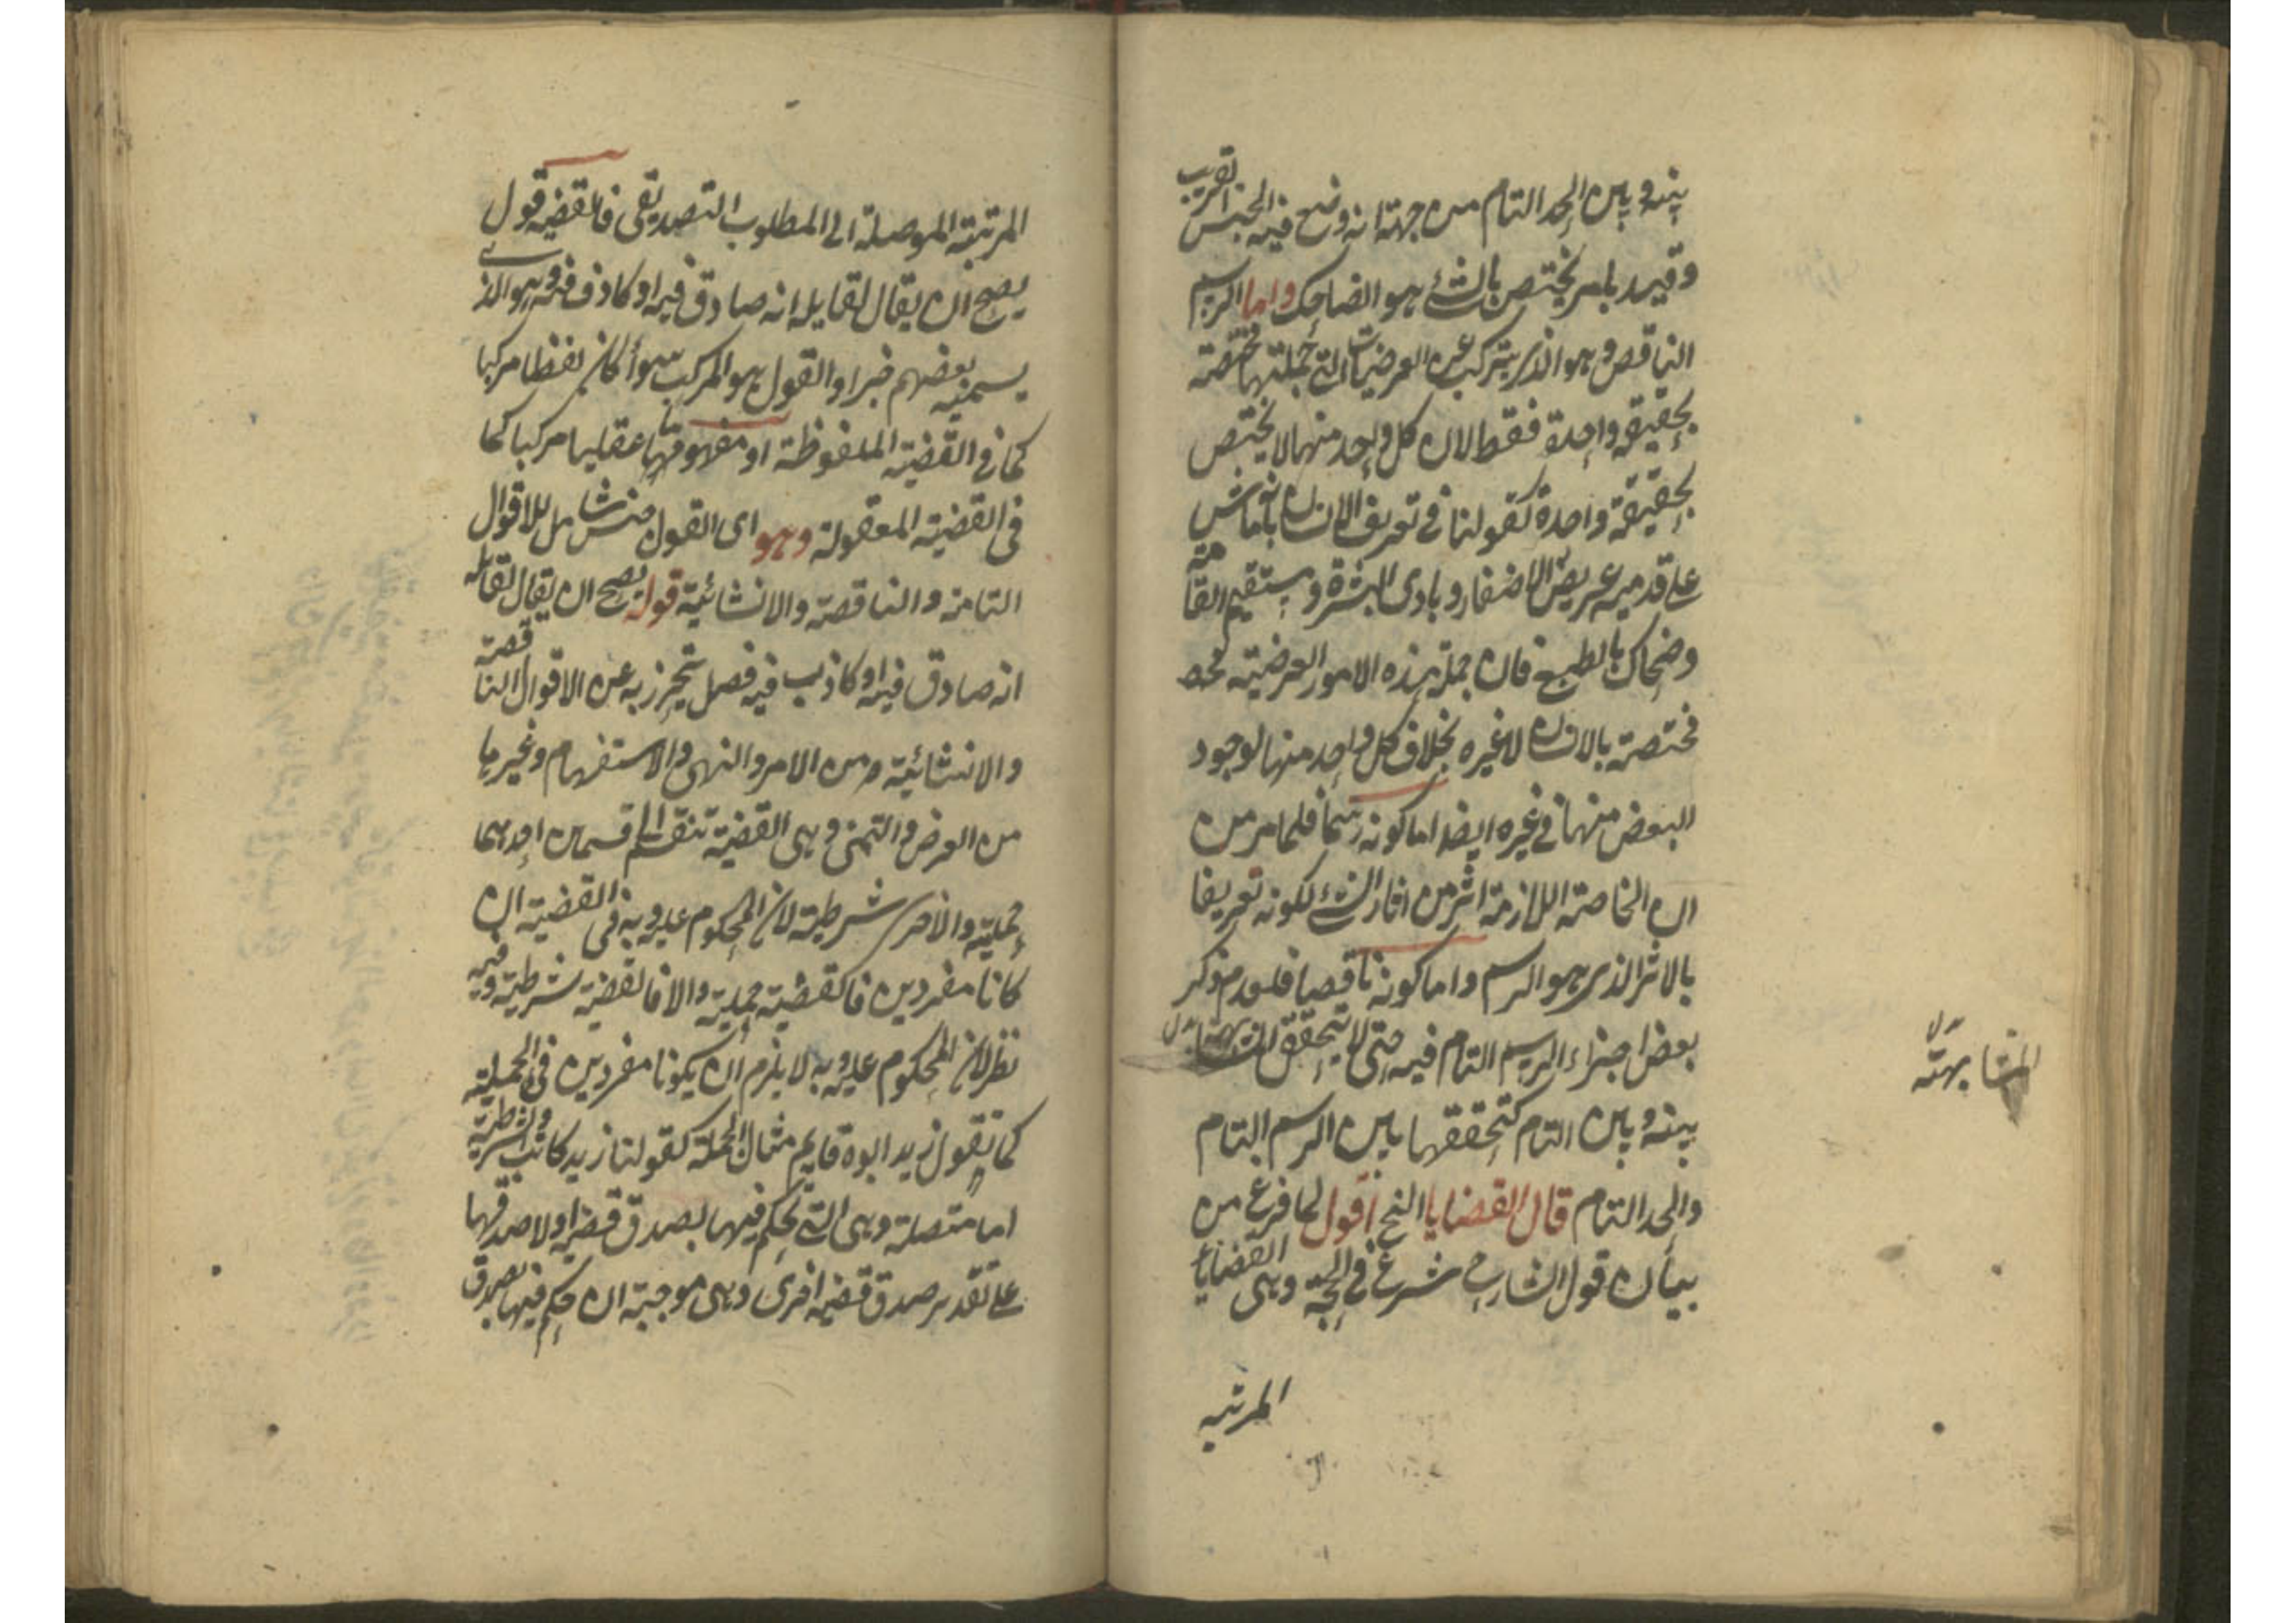 بينه وبين الحد التام من جهة انه وضع فيه الجنس القريب
وقيد بامر يختص بالشئ هو الضاحك واما الرسم
الناقص وهو الذى يتركب عن العرضيات التى جملتها مختصة
بحقيقة واحدة فقط لان كل واحد منها لا يختص
بحقيقة واحدة كقولنا فى تعريف الانسان بانه ماش
على قدميه عريض الاضفار وبادى البشرة ومستقيم القامة
وضحاك بالطبع فان جملة هذه الامور العرضية
مختصة بالانسان لا غيره بخلاف كل واحد منها لوجود
البعض منها فى غيره ايضا اما كونه رسما فلما مر من
ان الخاصة اللازمة اثر من اثار الشئ لكونه تعريفا
بالاثر الذى هو الرسم واما كونه ناقصا فلعدم ذكر
بعض اجزاء الرسم التام فيه حتى لا يتحقق المشابهة
المشابهة
بينه وبين التام كتحققها بين الرسم التام
والحد التام قال القضايا الخ اقول لما فرغ من
بيان قول الشارح شرع فى الحجة وهى القضايا
المرتبه
المرتبة الموصلة الى المطلوب التصديقى فالقضية قول
يصح ان يقال لقايله انه صادق فيه او كاذب فيه وهو الذى
يسميه بعضهم خبرا والقول هو المركب سوأ كان لفظا مركبا
كما فى القضية الملفوظة او مفهوما عقليا مركبا كما
فى القضية المعقولة وهو اى القول جنس شامل للاقوال
التامة والناقصة والانشائية قوله يصح ان يقال لقائله
انه صادق فيه او كاذب فيه فصل يحترز به عن الاقوال الناقصة
والانشائية من الامر والنهى والاستفهام وغيرها
من العرض والتمنى وهى القضية تنقسم الى قسمين احدهما
حملية والاخرى شرطية لان المحكوم عليه وبه فى القضية ان
كانا مفردين فالقضية حملية والا فالقضية شرطية وفيه
نظر لان المحكوم عليه وبه لا يلزم ان يكونا مفردين فى الحملية
كما تقول زيد ابوه قايم مثال الحملة كقولنا زيد كاتب والشرطية
اما متصلة وهى التى يحكم فيها بصدق قضية او لا صدقها
على تقدير صدق قضية اخرى وهى موجبة ان حكم فيها بصدق